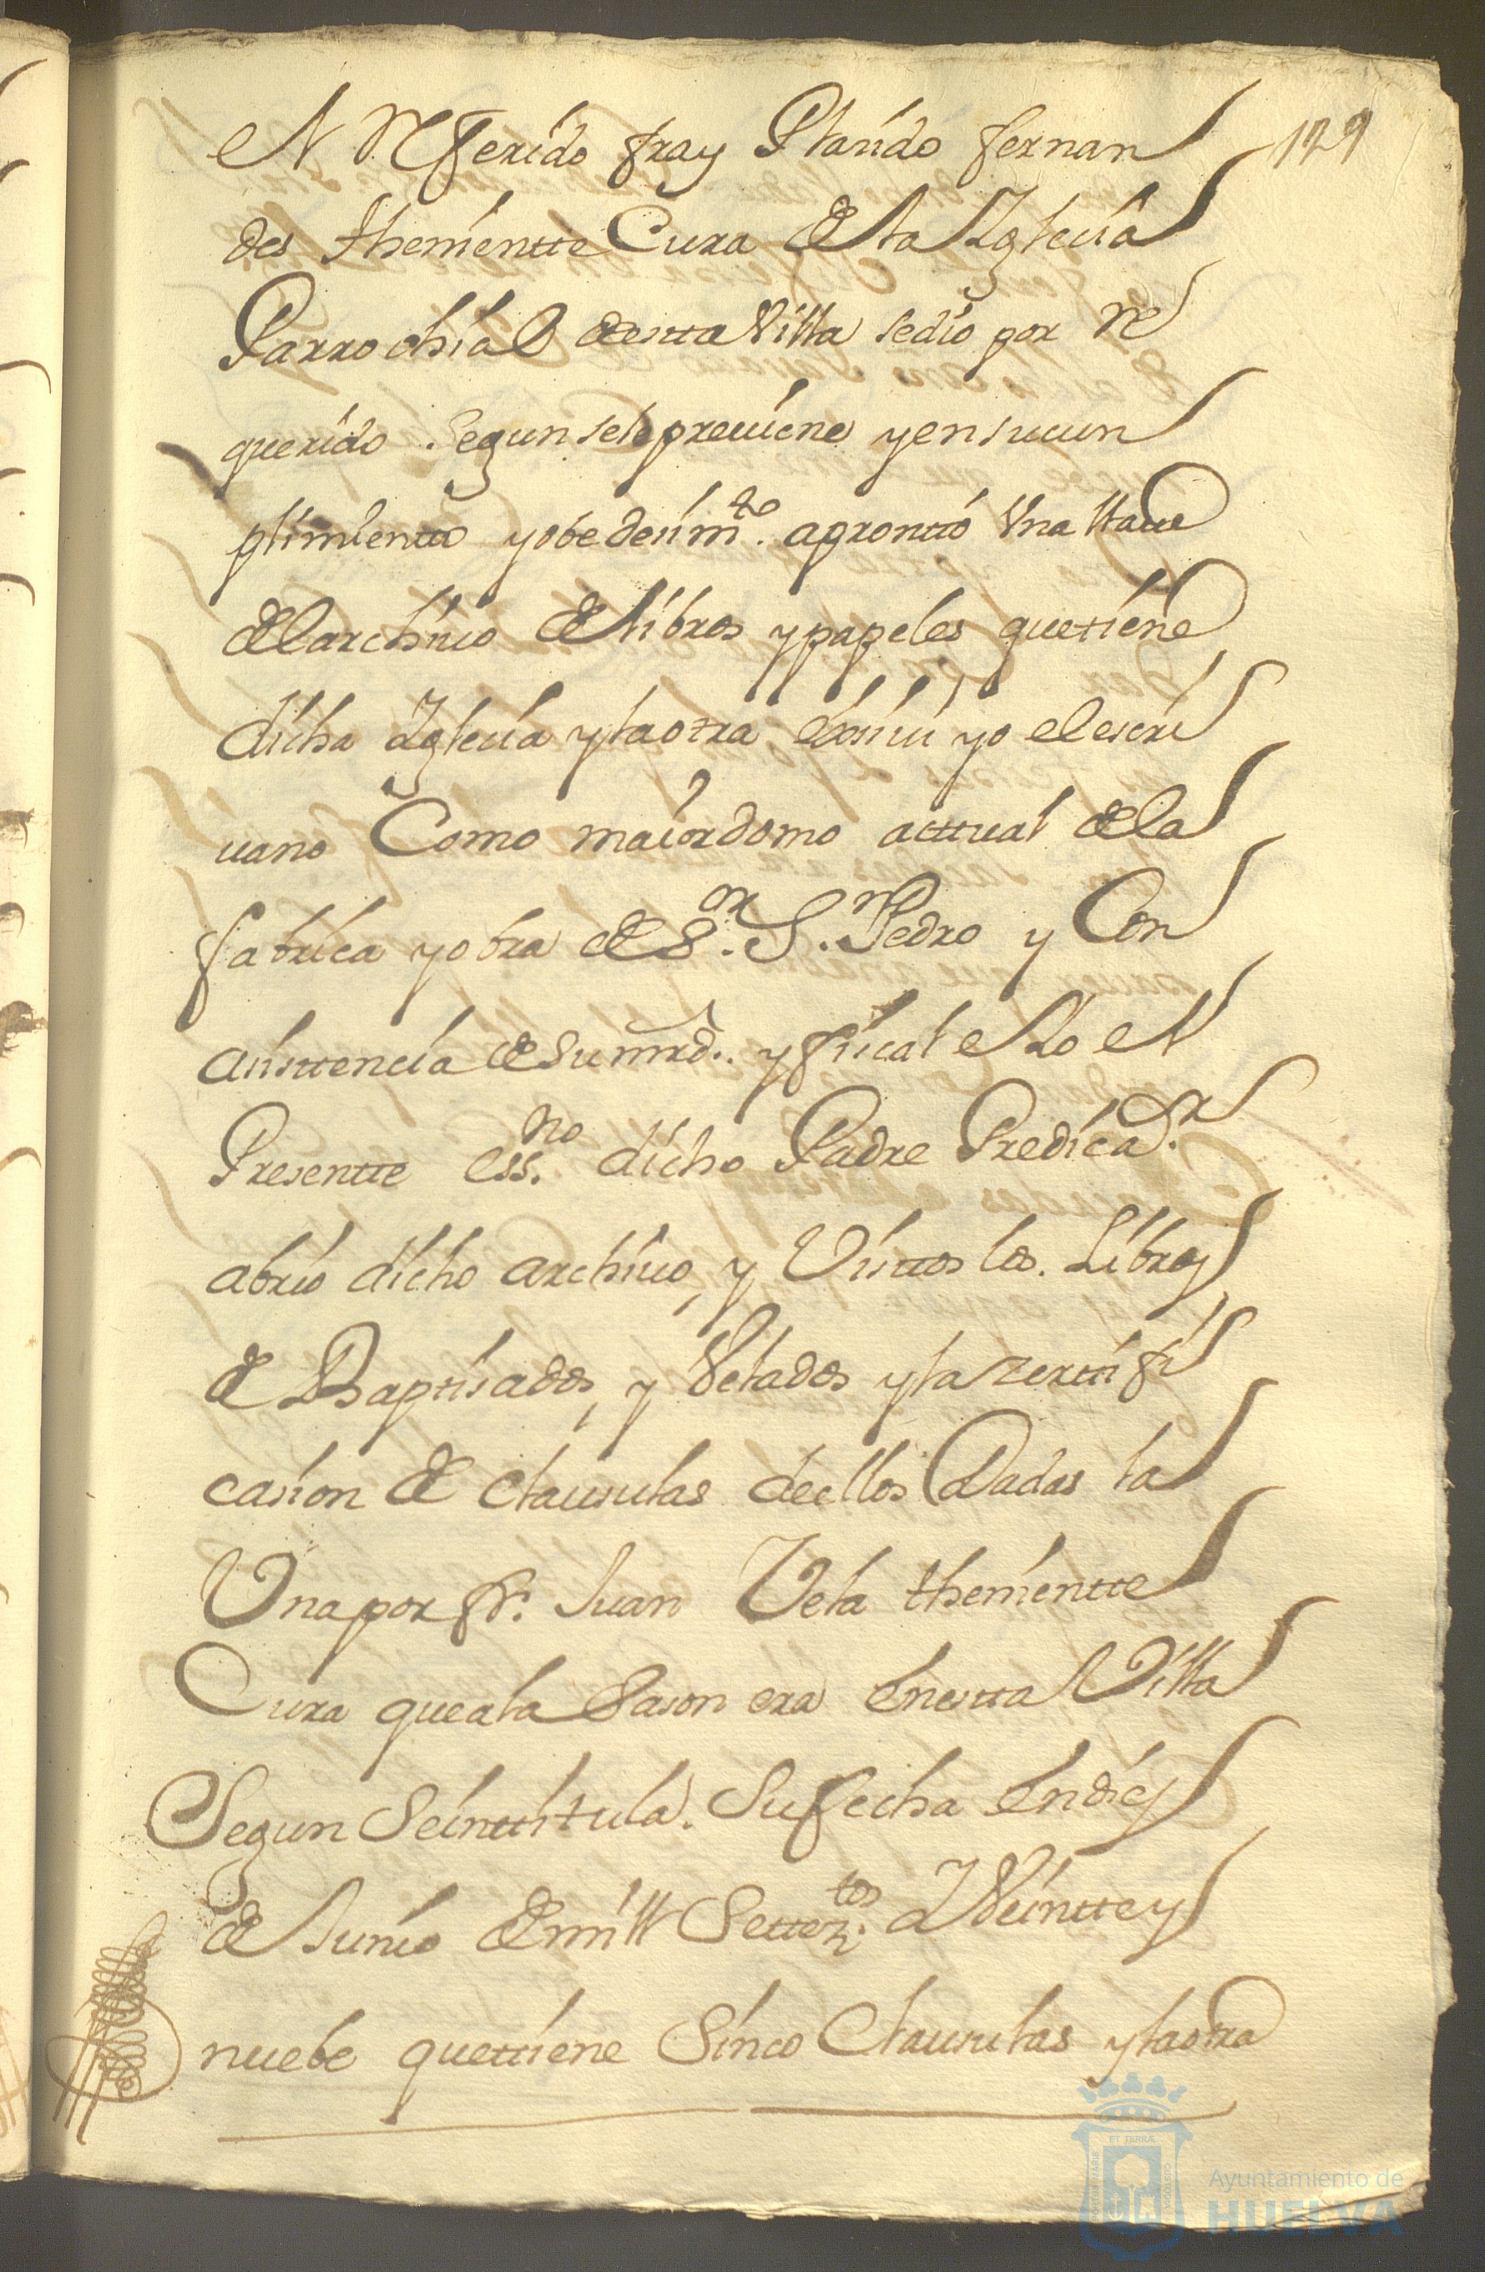 129
el Referido fray Plasido fernan
des thenientte Cura de la Yglecia
Parrochial de estta Villa se dio por re
querido. Segun se le preuiene y en su cun
plimientto y obedesim.to aprontto Vna llaue
del archiuo de libros y papeles que tiene
dicha Yglecia y la otra exsiui yo el escri
uano Como maiordomo acttual de la
fabrica y obra de S.or S.n Pedro y Con
asisttencia de su mrd.. y fiscal e Yo el
Presentte ess.no dicho Padre Predica.or
abrio dicho archiuo, y Visttos los Libros
de Baptisados, y Velados y la zerttifi
casion de clausulas de ellos Dadas la
Vna por fr. Juan Vela thenientte
Cura que a la Sason era En estta Villa
Segun Se inttitula. Su fecha En dies
de Junio de mill Settez.tos Y Veintte y
nuebe que ttiene Sinco Clausulas y la otra
Ayuntamiento de
HUELVA